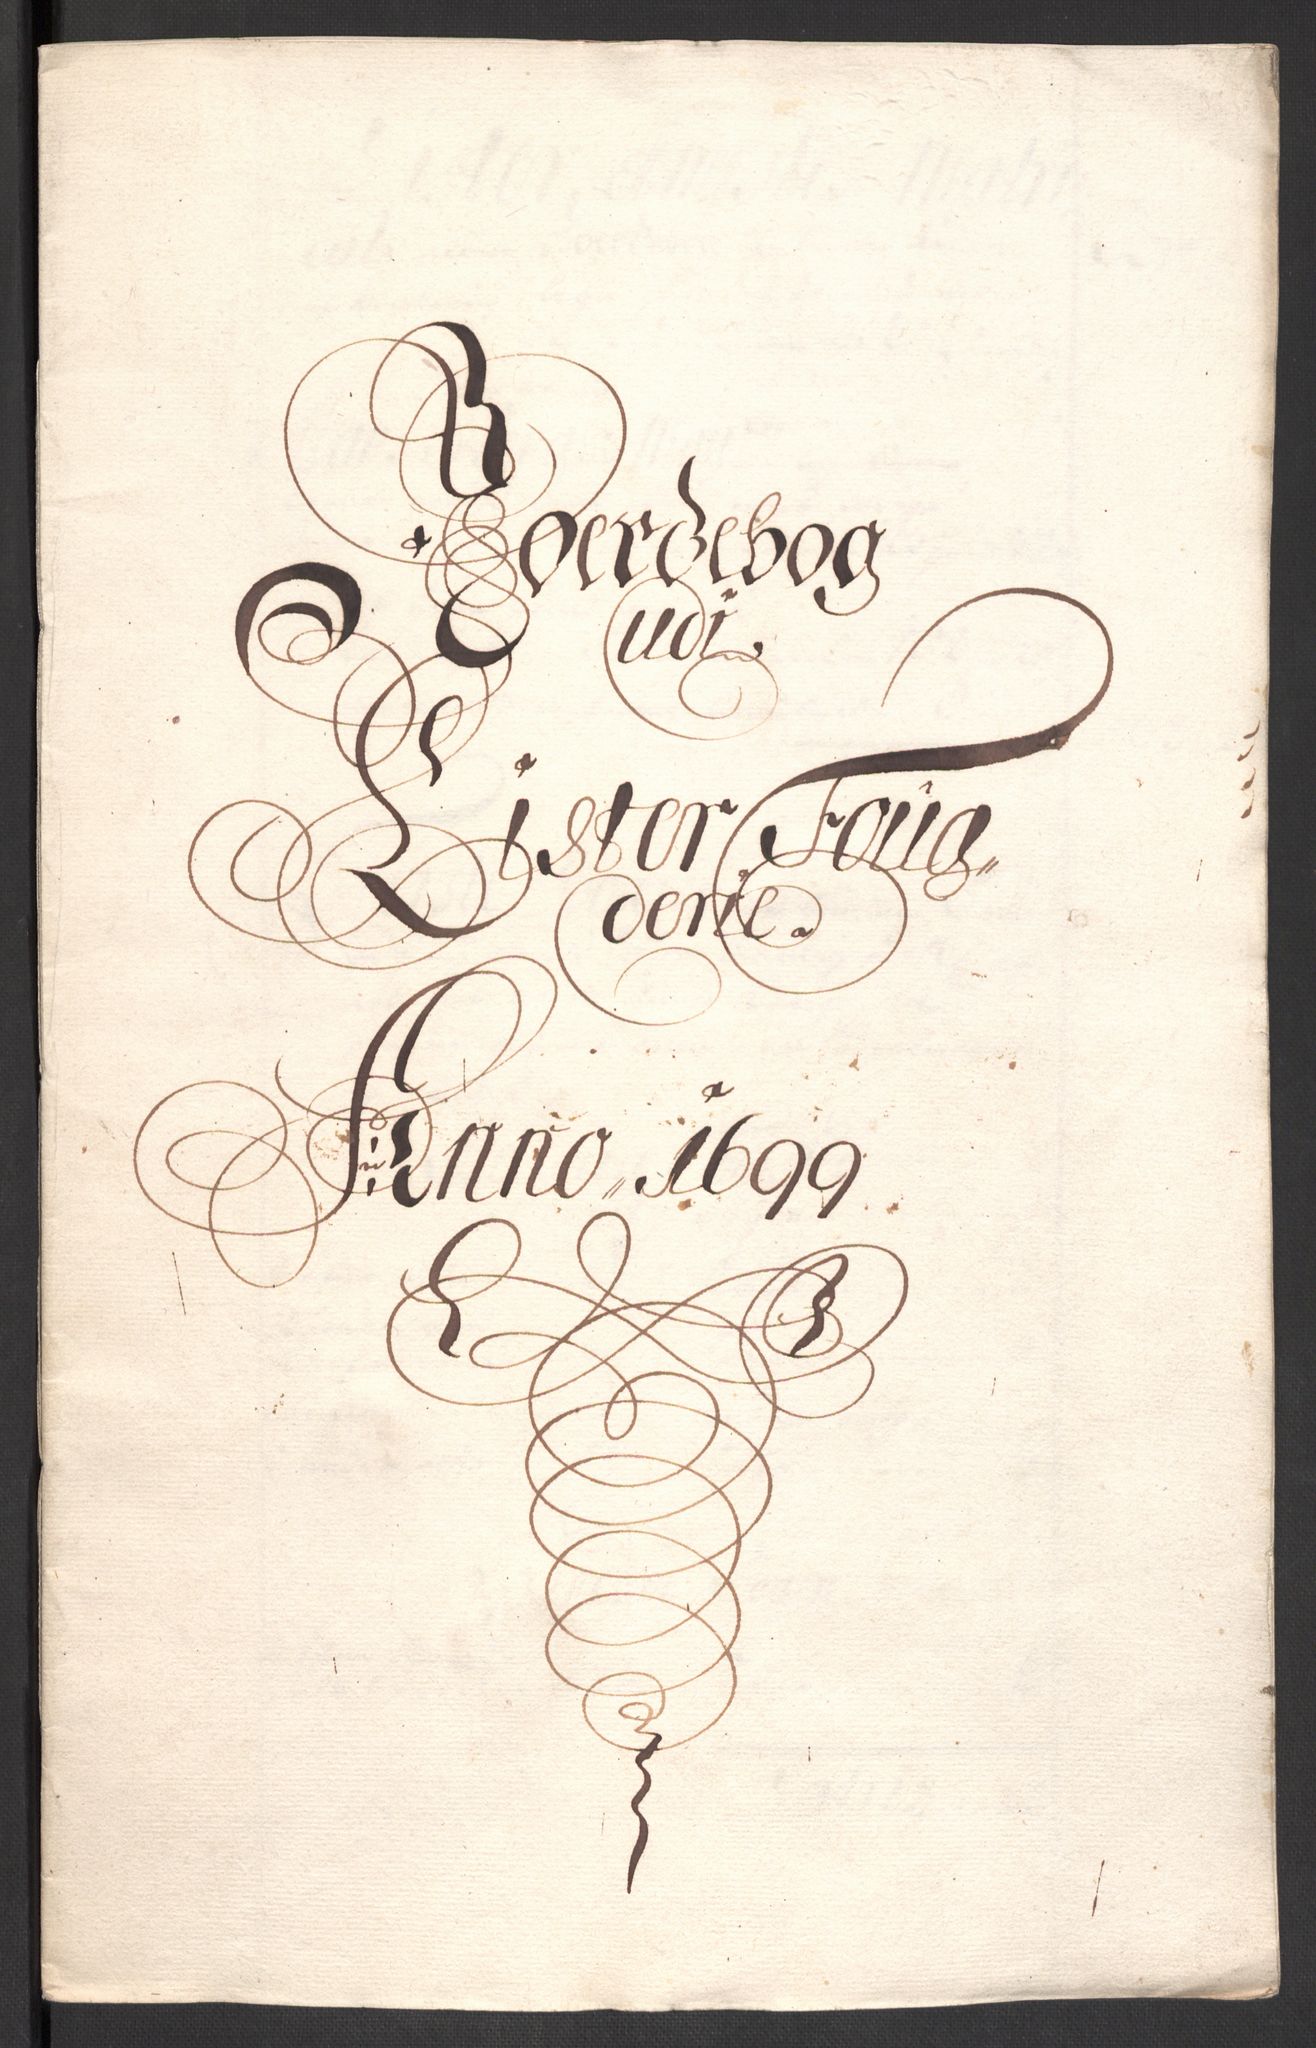 Joerdebog
udi
Lister Foug„
derie.
Anno„ 1699